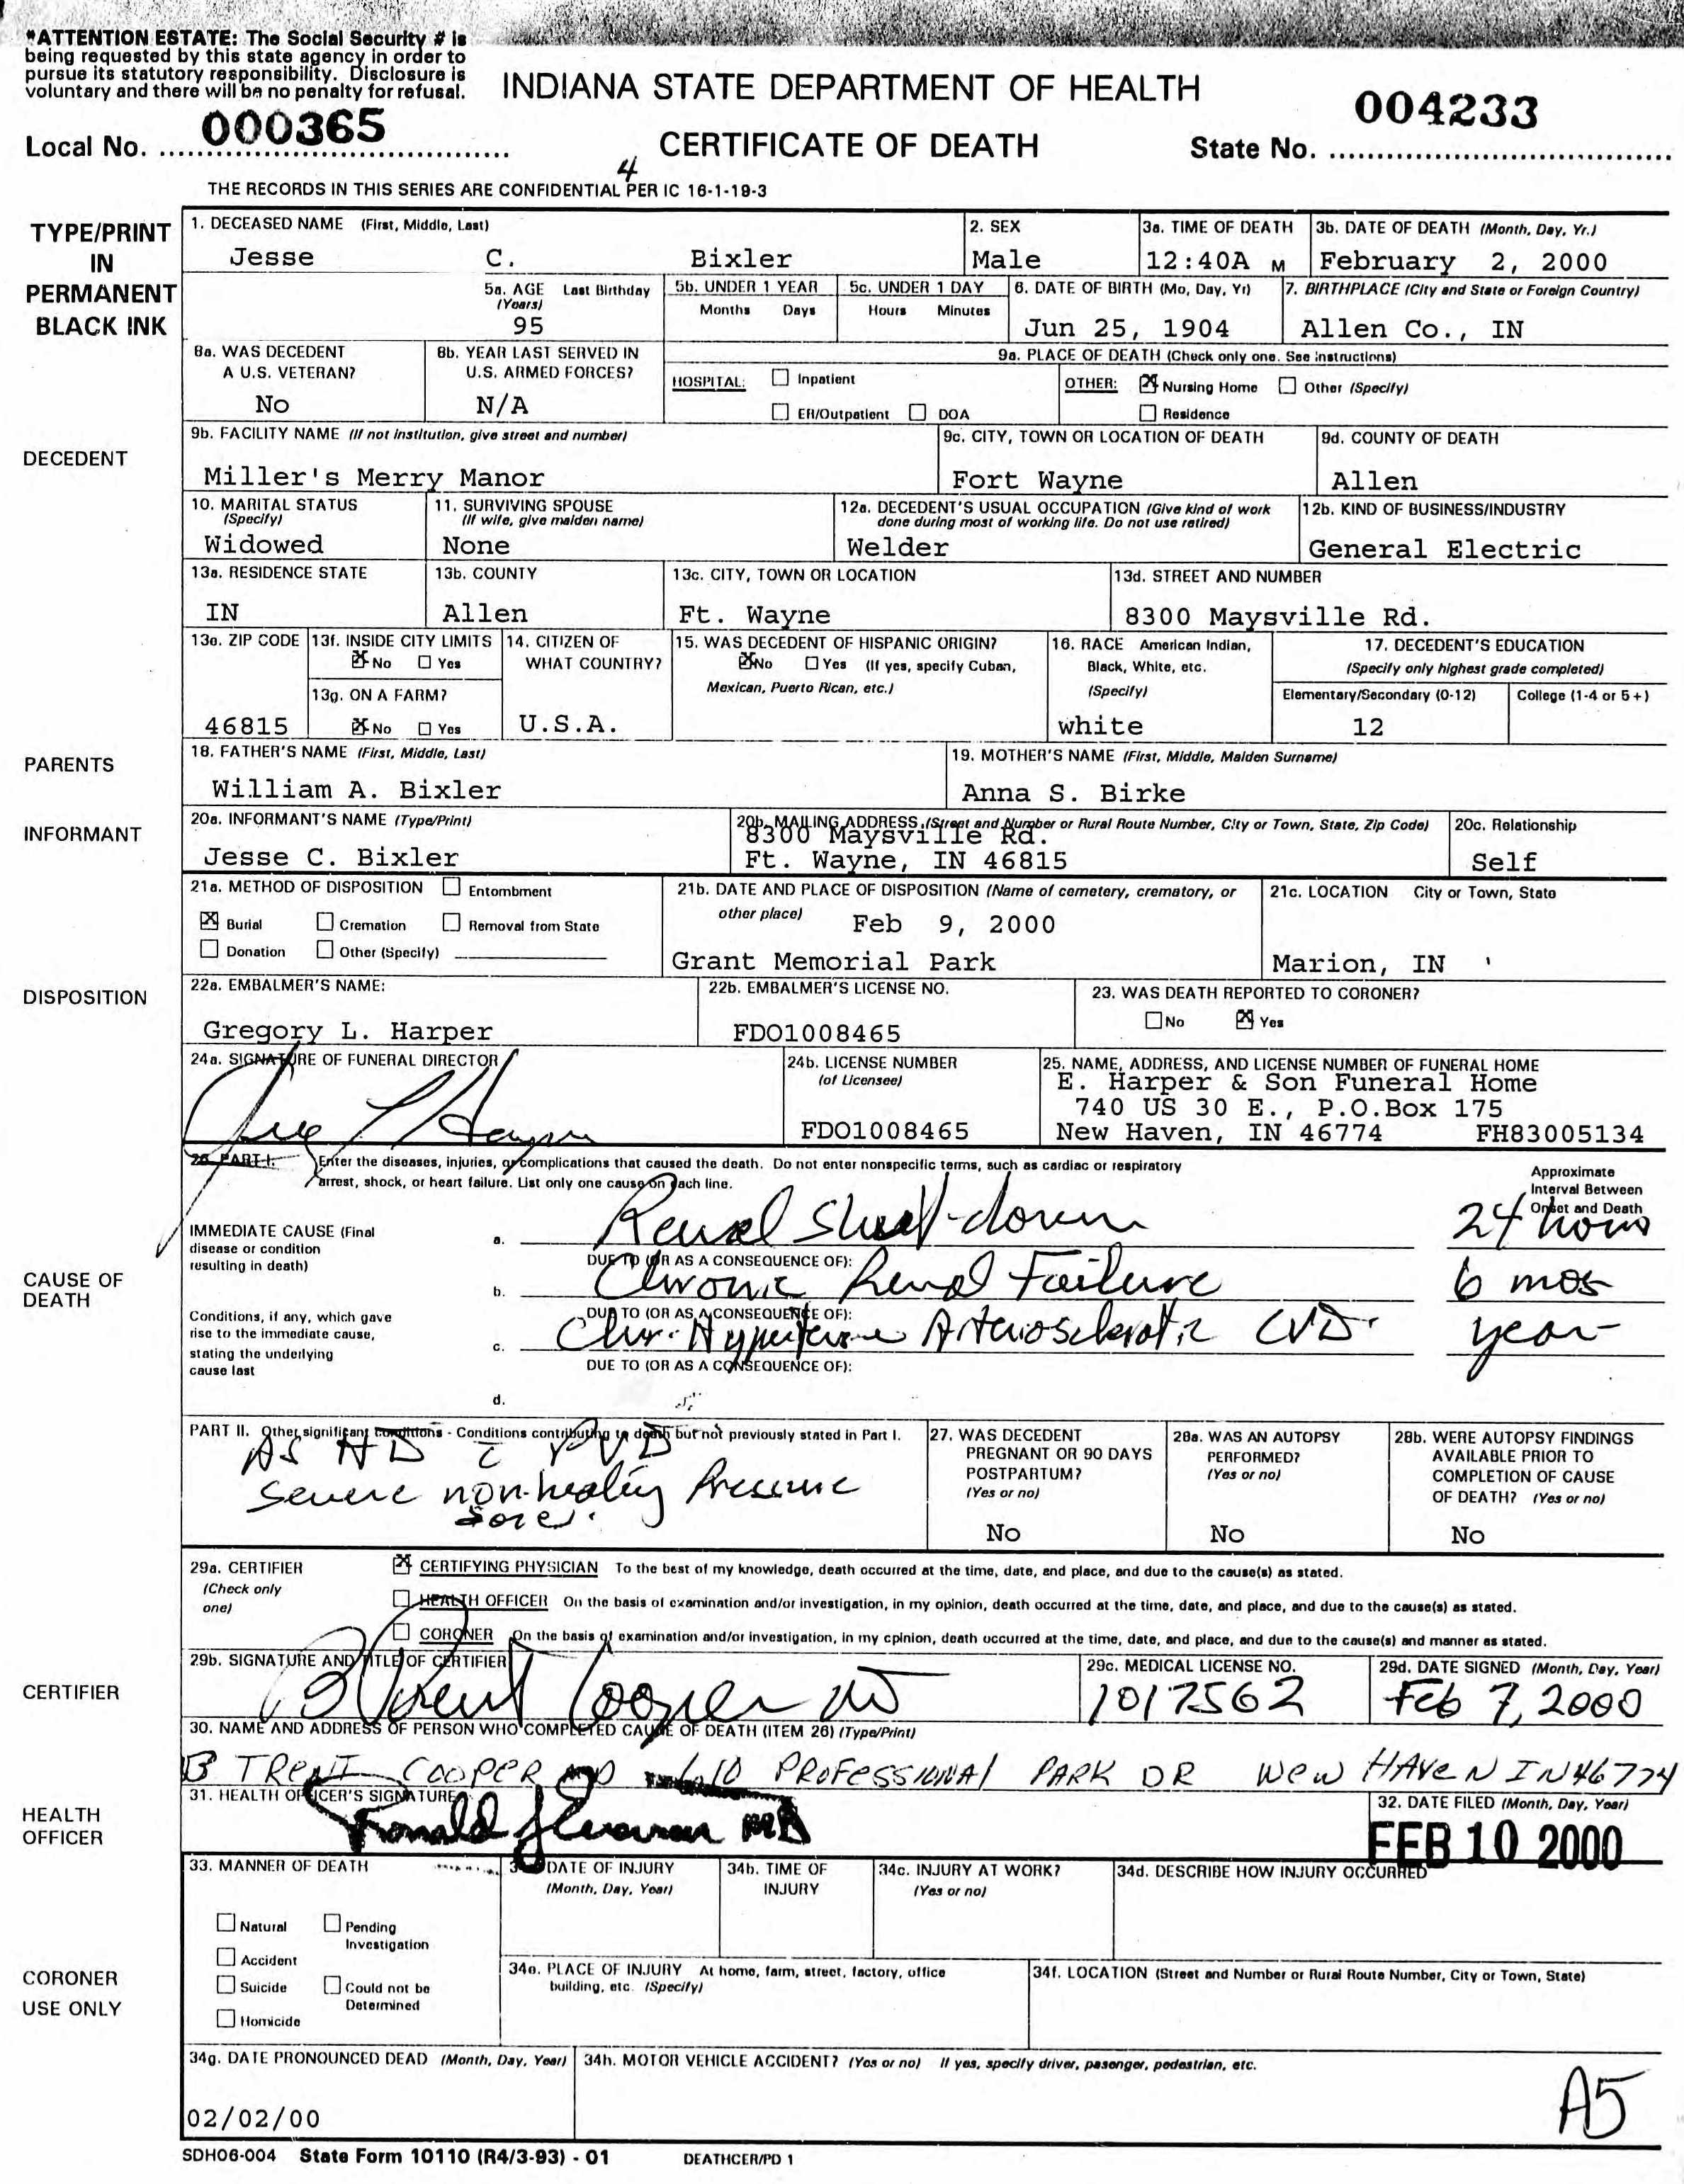 *ATTENTION ESTATE: The Social Security # is
being requested by this state agency in order to
pursue its statutory responsibility. Disclosure is
voluntary and there will be no penalty for refusal.
INDIANA STATE DEPARTMENT OF HEALTH
CERTIFICATE OF DEATH
Local No. 000365
State No. 004233
4
THE RECORDS IN THIS SERIES ARE CONFIDENTIAL PER IC 16-1-19-3
TYPE/PRINT
IN
PERMANENT
BLACK INK
1. DECEASED NAME (First, Middle, Last)
Jesse C. Bixler
2. SEX
Male
3a. TIME OF DEATH
12:40A M
3b. DATE OF DEATH (Month, Day, Yr.)
February 2, 2000
5a. AGE Last Birthday
(Years)
95
5b. UNDER 1 YEAR
Months Days
5c. UNDER 1 DAY
Hours Minutes
6. DATE OF BIRTH (Mo, Day, Yr)
Jun 25, 1904
7. BIRTHPLACE (City and State or Foreign Country)
Allen Co., IN
DECEDENT
8a. WAS DECEDENT
A U.S. VETERAN?
No
8b. YEAR LAST SERVED IN
U.S. ARMED FORCES?
N/A
9a. PLACE OF DEATH (Check only one. See instructions)
HOSPITAL: Inpatient
ER/Outpatient DOA
OTHER: Nursing Home Other (Specify)
Residence
9b. FACILITY NAME (If not institution, give street and number)
Miller's Merry Manor
9c. CITY, TOWN OR LOCATION OF DEATH
Fort Wayne
9d. COUNTY OF DEATH
Allen
10. MARITAL STATUS
(Specify)
Widowed
11. SURVIVING SPOUSE
(If wife, give maiden name)
None
12a. DECEDENT'S USUAL OCCUPATION (Give kind of work
done during most of working life. Do not use retired)
Welder
12b. KIND OF BUSINESS/INDUSTRY
General Electric
13a. RESIDENCE STATE
IN
13b. COUNTY
Allen
13c. CITY, TOWN OR LOCATION
Ft. Wayne
13d. STREET AND NUMBER
8300 Maysville Rd.
13e. ZIP CODE
46815
13f. INSIDE CITY LIMITS
No Yes
13g. ON A FARM?
No Yes
14. CITIZEN OF
WHAT COUNTRY?
U.S.A.
15. WAS DECEDENT OF HISPANIC ORIGIN?
No Yes (If yes, specify Cuban,
Mexican, Puerto Rican, etc.)
16. RACE American Indian,
Black, White, etc.
(Specify)
white
17. DECEDENT'S EDUCATION
(Specify only highest grade completed)
Elementary/Secondary (0-12) College (1-4 or 5+)
12
PARENTS
18. FATHER'S NAME (First, Middle, Last)
William A. Bixler
19. MOTHER'S NAME (First, Middle, Maiden Surname)
Anna S. Birke
INFORMANT
20a. INFORMANT'S NAME (Type/Print)
Jesse C. Bixler
20b. MAILING ADDRESS (Street and Number or Rural Route Number, City or Town, State, Zip Code)
8300 Maysville Rd.
Ft. Wayne, IN 46815
20c. Relationship
Self
DISPOSITION
21a. METHOD OF DISPOSITION Entombment
Burial Cremation Removal from State
Donation Other (Specify)
21b. DATE AND PLACE OF DISPOSITION (Name of cemetery, crematory, or
other place)
Feb 9, 2000
Grant Memorial Park
21c. LOCATION City or Town, State
Marion, IN
22a. EMBALMER'S NAME:
Gregory L. Harper
22b. EMBALMER'S LICENSE NO.
FDO1008465
23. WAS DEATH REPORTED TO CORONER?
No Yes
24a. SIGNATURE OF FUNERAL DIRECTOR
24b. LICENSE NUMBER
(of Licensee)
FDO1008465
25. NAME, ADDRESS, AND LICENSE NUMBER OF FUNERAL HOME
E. Harper & Son Funeral Home
740 US 30 E., P.O.Box 175
New Haven, IN 46774 FH83005134
CAUSE OF
DEATH
26. PART I. Enter the diseases, injuries, or complications that caused the death. Do not enter nonspecific terms, such as cardiac or respiratory
arrest, shock, or heart failure. List only one cause on each line.
Approximate
Interval Between
Onset and Death
IMMEDIATE CAUSE (Final
disease or condition
resulting in death)
a. Renal Shut-down 24 hours
DUE TO (OR AS A CONSEQUENCE OF):
b. Chronic Renal Failure 6 mos
Conditions, if any, which gave
rise to the immediate cause,
stating the underlying
cause last
DUE TO (OR AS A CONSEQUENCE OF):
c. Chr. Hypertensive Arteriosclerotic CVD. year
DUE TO (OR AS A CONSEQUENCE OF):
d.
PART II. Other significant conditions - Conditions contributing to death but not previously stated in Part I.
AS HD c PVD
Severe non-healing Pressure
Sore.
27. WAS DECEDENT
PREGNANT OR 90 DAYS
POSTPARTUM?
(Yes or no)
No
28a. WAS AN AUTOPSY
PERFORMED?
(Yes or no)
No
28b. WERE AUTOPSY FINDINGS
AVAILABLE PRIOR TO
COMPLETION OF CAUSE
OF DEATH? (Yes or no)
No
CERTIFIER
29a. CERTIFIER
(Check only
one)
CERTIFYING PHYSICIAN To the best of my knowledge, death occurred at the time, date, and place, and due to the cause(s) as stated.
HEALTH OFFICER On the basis of examination and/or investigation, in my opinion, death occurred at the time, date, and place, and due to the cause(s) as stated.
CORONER On the basis of examination and/or investigation, in my opinion, death occurred at the time, date, and place, and due to the cause(s) and manner as stated.
29b. SIGNATURE AND TITLE OF CERTIFIER
B Trent Cooper MD
29c. MEDICAL LICENSE NO.
1017562
29d. DATE SIGNED (Month, Day, Year)
Feb 7, 2000
30. NAME AND ADDRESS OF PERSON WHO COMPLETED CAUSE OF DEATH (ITEM 26) (Type/Print)
B TRENT COOPER MD 1610 PROFESSIONAL PARK DR NEW HAVEN IN 46774
HEALTH
OFFICER
31. HEALTH OFFICER'S SIGNATURE
32. DATE FILED (Month, Day, Year)
FEB 10 2000
CORONER
USE ONLY
33. MANNER OF DEATH
Natural Pending
Investigation
Accident
Suicide Could not be
Determined
Homicide
DATE OF INJURY
(Month, Day, Year)
34b. TIME OF
INJURY
34c. INJURY AT WORK?
(Yes or no)
34d. DESCRIBE HOW INJURY OCCURRED
34e. PLACE OF INJURY At home, farm, street, factory, office
building, etc. (Specify)
34f. LOCATION (Street and Number or Rural Route Number, City or Town, State)
34g. DATE PRONOUNCED DEAD (Month, Day, Year)
02/02/00
34h. MOTOR VEHICLE ACCIDENT? (Yes or no) If yes, specify driver, pasenger, pedestrian, etc.
A5
SDH06-004 State Form 10110 (R4/3-93) - 01 DEATHCER/PD 1